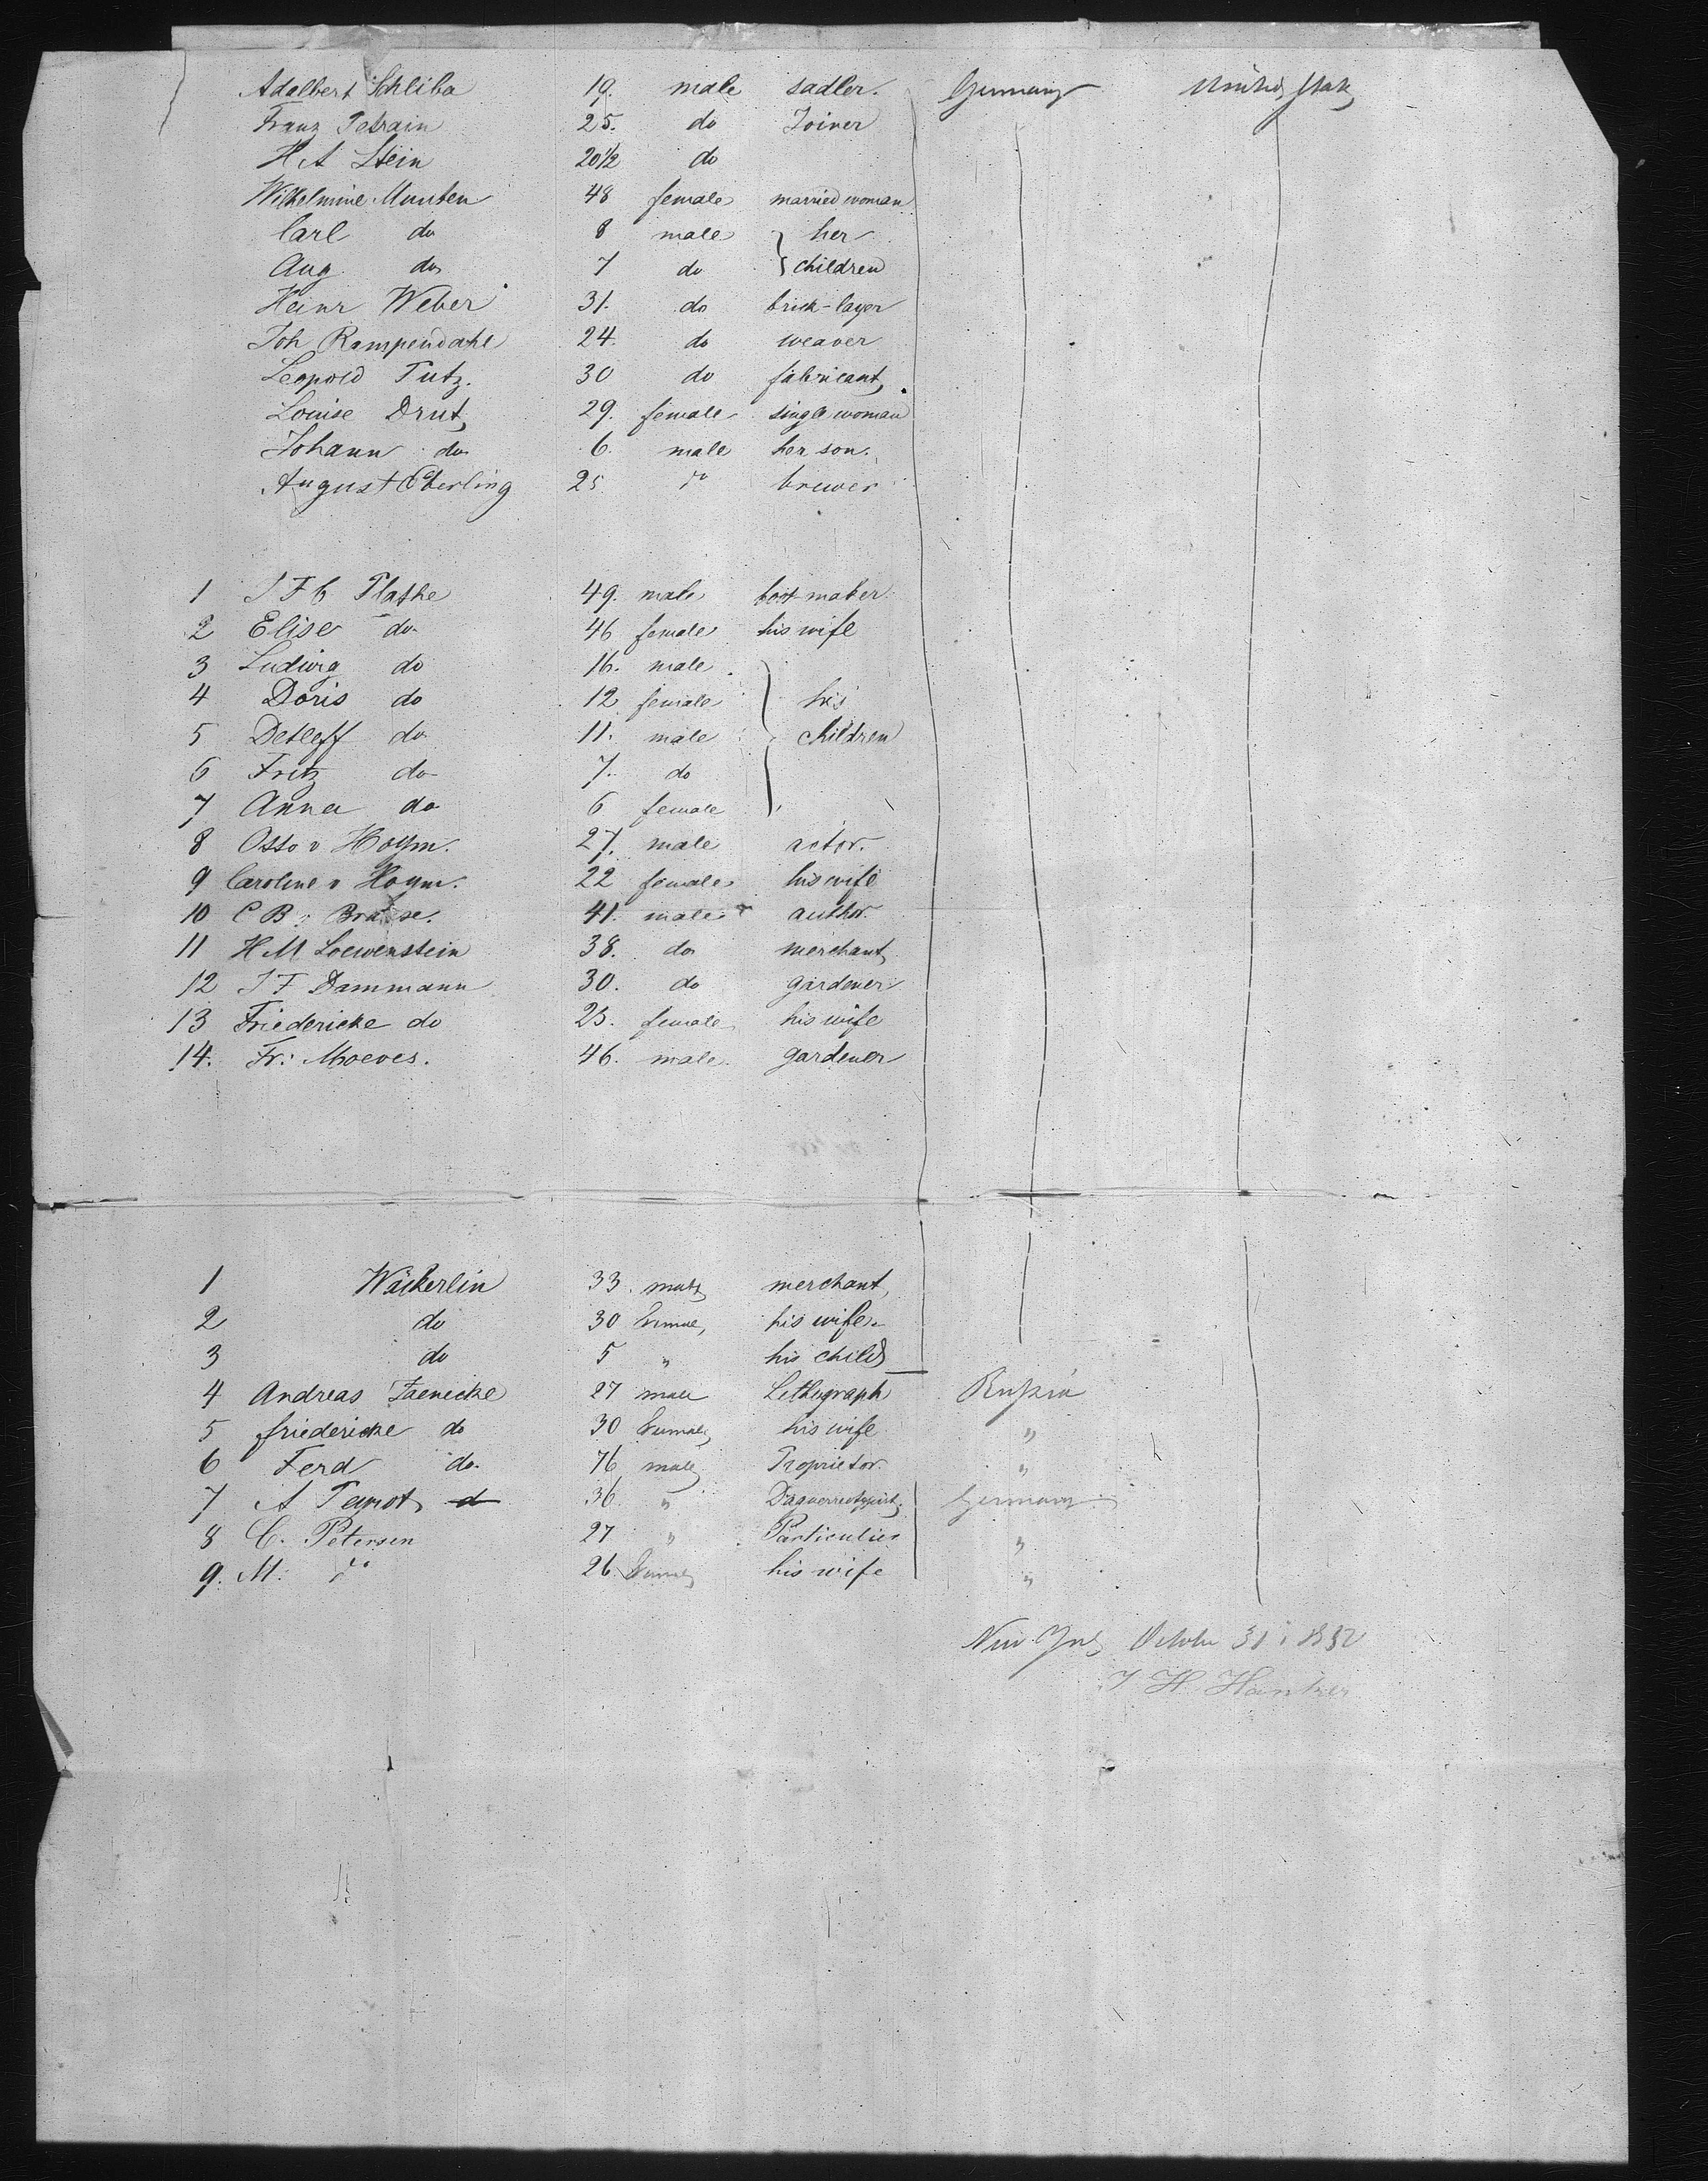 Adalbert Schliba 19. male sadler. Germany United States
Franz Petrain 25. do Joiner
H A Stein 20 1/2 do
Wilhelmine Munten 48 female married woman
Carl do 8 male her
Aug do 7 do children
Heinr Weber 31. do brick-layer
Joh Rampendahl 24. do weaver
Leopold Tutz. 30 do fabricant
Louise Drut 29. female single woman
Johann do 6. male her son.
August Eberling 25 do brewer
1 J F C Plathe 49. male bootmaker
2 Elise do 46 female his wife
3 Ludwig do 16. male
4 Doris do 12 female his
5 Detleff do 11. male children
6 Fritz do 7. do
7 Anna do 6 female
8 Otto v Hoym. 27. male actor.
9 Caroline v Hoym. 22 female his wife
10 C B: 41. male author.
11 H M Loewenstein 38. do merchant
12 J F Dammann 30. do gardener
13 Friedericke do 25. female his wife
14. Fr: Moeves. 46. male gardener
1 Wäckerlin 33. male merchant
2 do 30 female his wife
3 do 5 " his child
4 Andreas Jaenicke 27 male Lithograph Russia
5 friedericke do 30 female his wife "
6 Ferd do. 76 male Proprietor. "
7 A 36 " Daguerreotypist Germany
8 C. Petersen 27 " Particulier "
9. M. do 26 female his wife "
New York October 31 1852
J H Hantzer